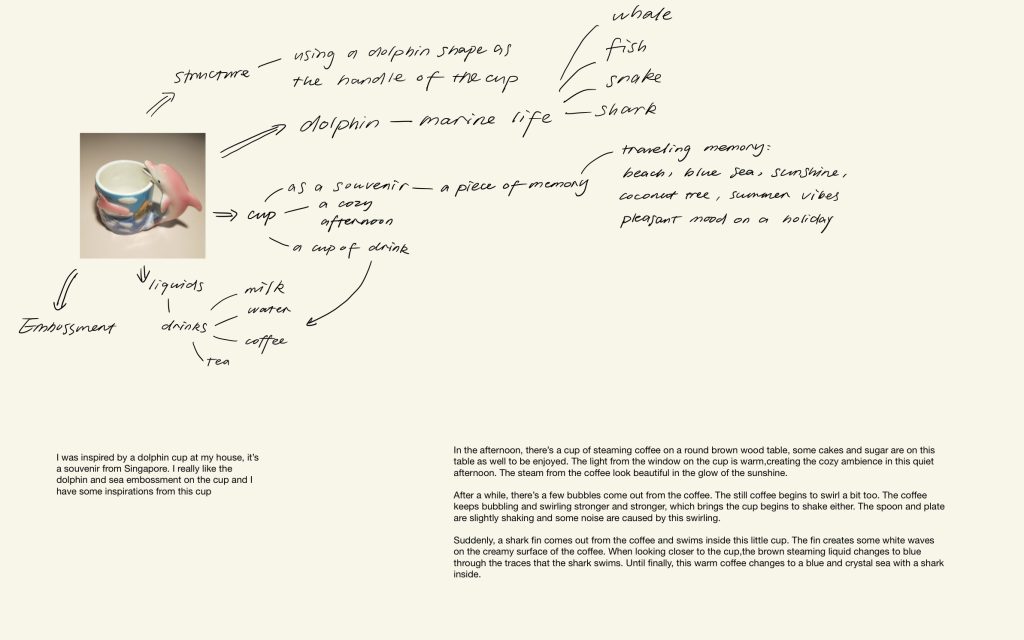 whale
fish
snake
shark
structure
using a dolphin shape as
the handle of the cup
dolphin — marine life
traveling memory:
beach, blue sea, sunshine,
coconut tree, summer vibes
pleasant mood on a holiday
cup
as a souvenir — a piece of memory
a cozy
afternoon
a cup of drink
liquids
drinks
milk
water
coffee
tea
Embossment
I was inspired by a dolphin cup at my house, it's
a souvenir from Singapore. I really like the
dolphin and sea embossment on the cup and I
have some inspirations from this cup
In the afternoon, there's a cup of steaming coffee on a round brown wood table, some cakes and sugar are on this
table as well to be enjoyed. The light from the window on the cup is warm,creating the cozy ambience in this quiet
afternoon. The steam from the coffee look beautiful in the glow of the sunshine.
After a while, there's a few bubbles come out from the coffee. The still coffee begins to swirl a bit too. The coffee
keeps bubbling and swirling stronger and stronger, which brings the cup begins to shake either. The spoon and plate
are slightly shaking and some noise are caused by this swirling.
Suddenly, a shark fin comes out from the coffee and swims inside this little cup. The fin creates some white waves
on the creamy surface of the coffee. When looking closer to the cup,the brown steaming liquid changes to blue
through the traces that the shark swims. Until finally, this warm coffee changes to a blue and crystal sea with a shark
inside.